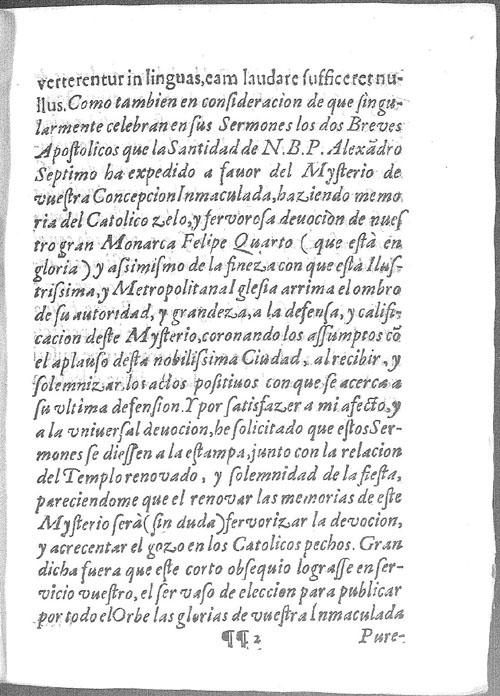 verterentur in linguas, eam laudare sufficeret nu-
llus. Como tambien en consideracion de que singu-
larmente celebran en sus Sermones los dos Breves
Apostolicos que la Santidad de N. B. P. Alexãdro
Septimo ha expedido a fauor del Mysterio de
vuestra Concepcion Inmaculada, haziendo memo
ria del Catolico zelo, y fervorosa devocion de nues
tro gran Monarca Felipe Quarto ( que està en
gloria ) y assimismo de la fineza con que esta Ilus-
trissima, y Metropolitana Iglesia arrima el ombro
de su autoridad, y grandeza, a la defensa, y califi-
cacion deste Mysterio, coronando los assumptos cõ
el aplauso desta nobilissima Ciudad, al recibir, y
solemnizar los actos positiuos con que se acerca a
su vltima defension. Y por satisfazer a mi afecto, y
a la vniuersal deuocion, he solicitado que estos Ser-
mones se diessen a la estampa, junto con la relacion
del Templo renovado, y solemnidad de la fiesta,
pareciendome que el renovar las memorias de este
Mysterio serà (sin duda) fervorizar la devocion,
y acrecentar el gozo en los Catolicos pechos. Gran
dicha fuera que este corto obsequio lograsse en ser-
vicio vuestro, el ser vaso de eleccion para publicar
por todo el Orbe las glorias de vuestra Inmaculada
¶¶ 2 Pure-